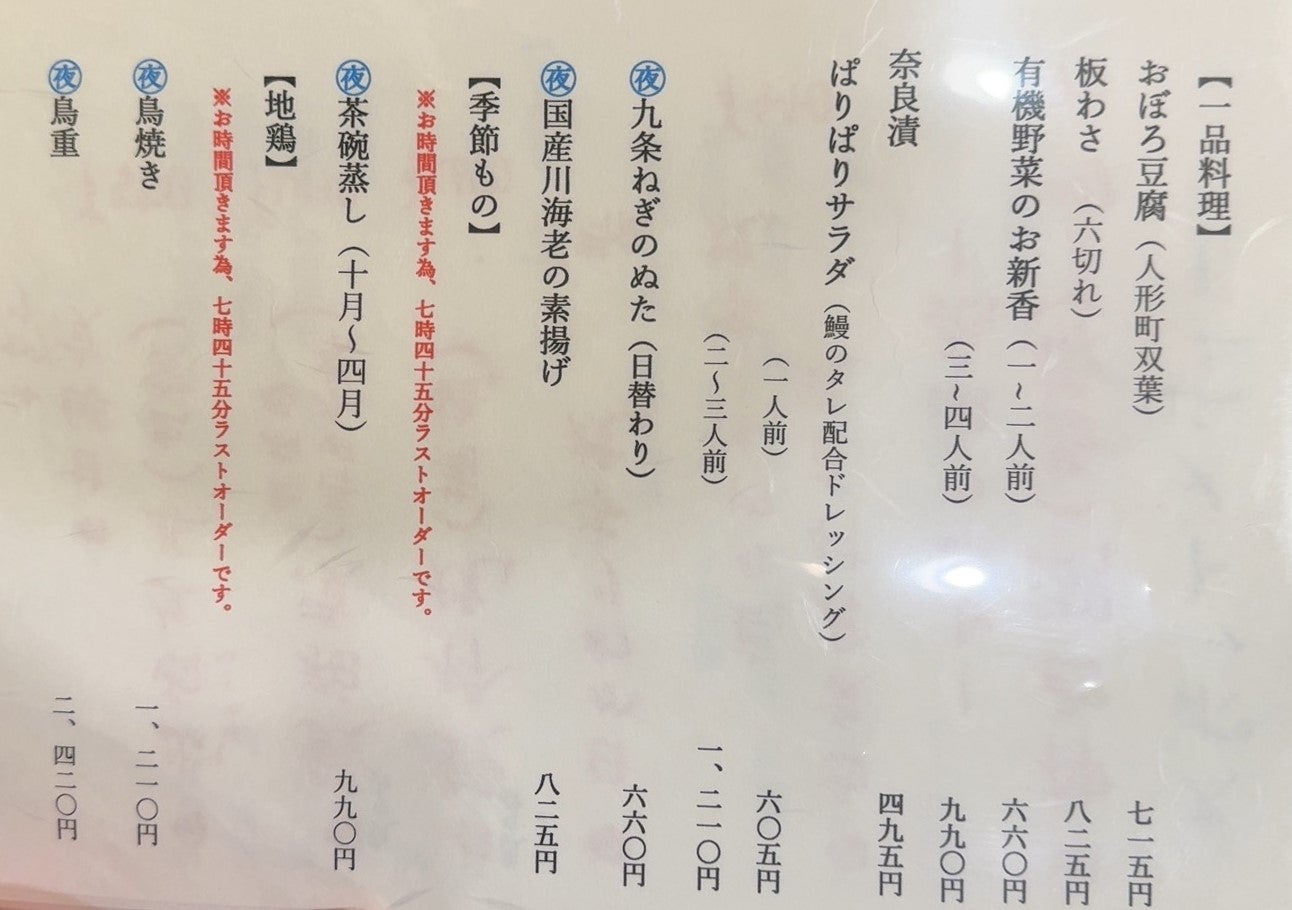 【一品料理】
おぼろ豆腐（人形町双葉） 七一五円
板わさ （六切れ） 八二五円
有機野菜のお新香（一～二人前） 六六〇円
（三～四人前） 九九〇円
奈良漬 四九五円
ぱりぱりサラダ（鰻のタレ配合ドレッシング）
（一人前） 六〇五円
（二～三人前） 一、二一〇円
夜九条ねぎのぬた（日替わり） 六六〇円
夜国産川海老の素揚げ 八二五円
【季節もの】
※お時間頂きます為、七時四十五分ラストオーダーです。
夜茶碗蒸し（十月～四月） 九九〇円
【地鶏】
※お時間頂きます為、七時四十五分ラストオーダーです。
夜鳥焼き 一、二一〇円
夜鳥重 二、四二〇円